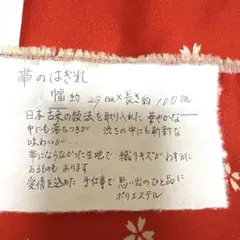 帯のはぎれ
幅 約29cm×長さ約100cm
日本古来の技法を取り入れた 華やかな
中にも落ちつきが 渋さの中にも斬新な
味わいが…
帯にならなかった生地で 織りキズがわずかに
あるものもあります
愛情を込めた 手仕事で 思い出のひと品に
ポリエステル